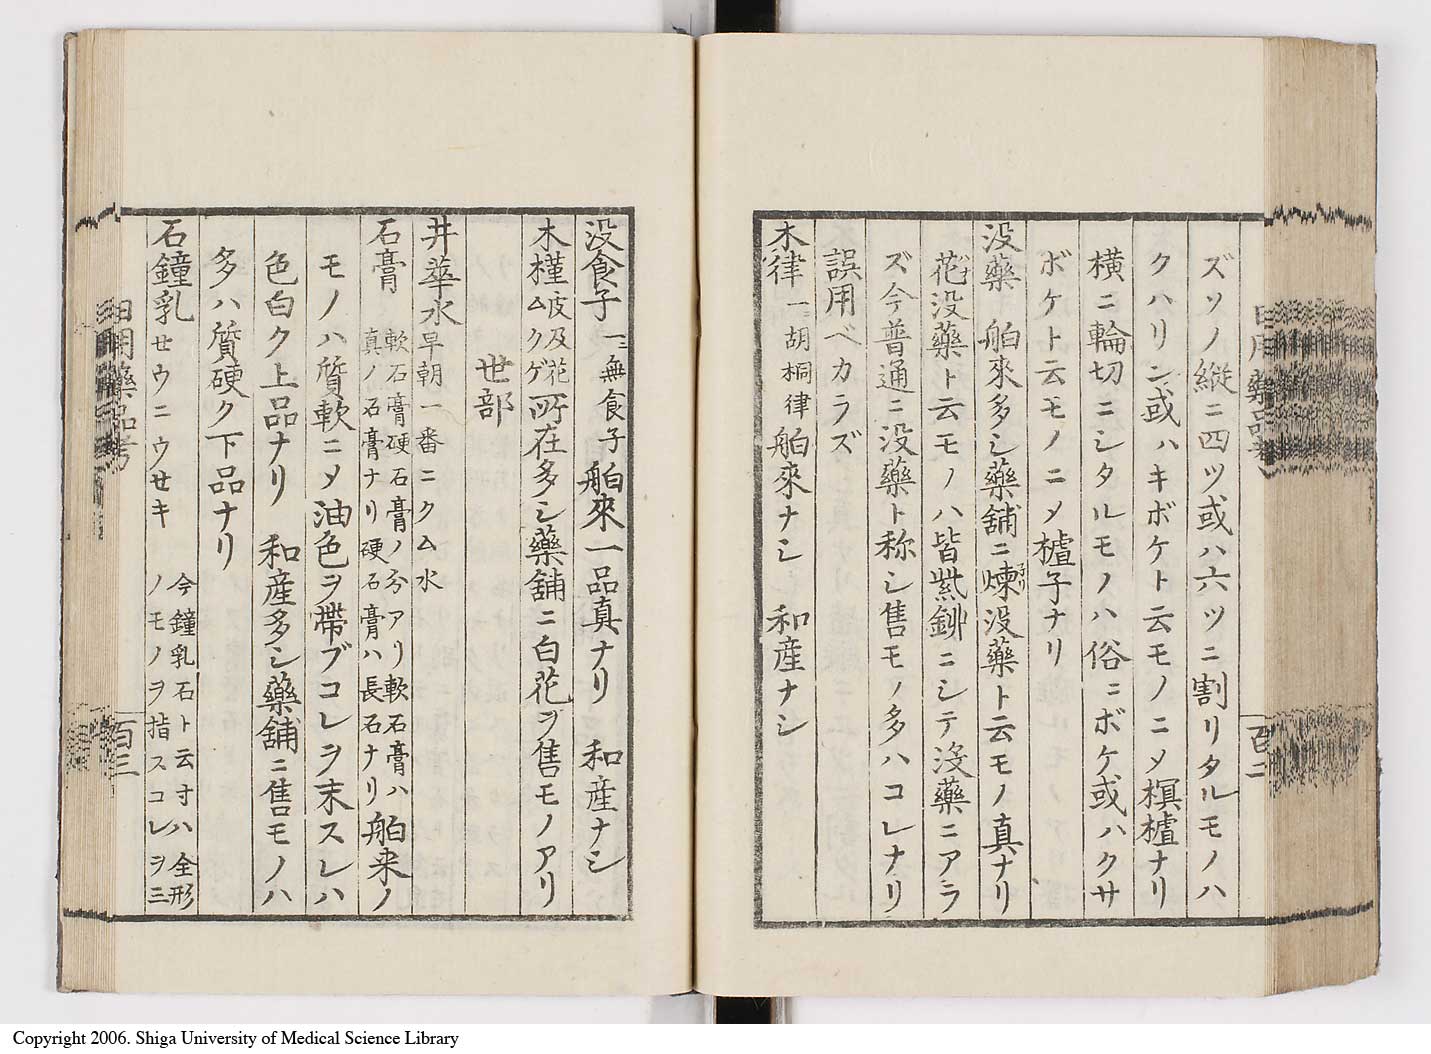 ズソノ縦ニ四ツ或ハ六ツニ割リタルモノハ
クハリン或ハキボケト云モノニメ榠樝ナリ
横ニ輪切ニシタルモノハ俗ニボケ或ハクサ
ボケト云モノニメ樝子ナリ
没藥 舶來多シ藥舗ニ煉没藥ト云モノ真ナリ
花没藥ト云モノハ皆紫鉚ニシテ没藥ニアラ
ズ今普通ニ没藥ト称シ售モノ多ハコレナリ
誤用ベカラズ
木律 一ニ胡桐律 舶來ナシ 和産ナシ
百二
没食子 一ニ無食子 舶來一品真ナリ 和産ナシ
木槿 皮及花 ムクゲ 所在多シ藥舗ニ白花ヲ售モノアリ
世部
井華水 早朝一番ニクム水
石膏 軟石膏硬石膏ノ分アリ軟石膏ハ
真ノ石膏ナリ硬石膏ハ長石ナリ 舶来ノ
モノハ質軟ニメ油色ヲ帶ブコレヲ末スレハ
色白ク上品ナリ 和産多シ藥舗ニ售モノハ
多ハ質硬ク下品ナリ
石鐘乳 せウニウせキ 今鐘乳石ト云寸ハ全形
ノモノヲ指スコレヲ三
日用藥品考
百三
Copyright 2006. Shiga University of Medical Science Library